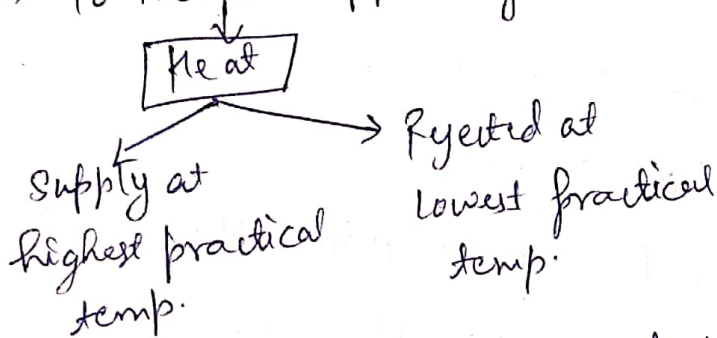 Heat
Supply at
highest practical
temp.
Rejected at
Lowest practical
temp.